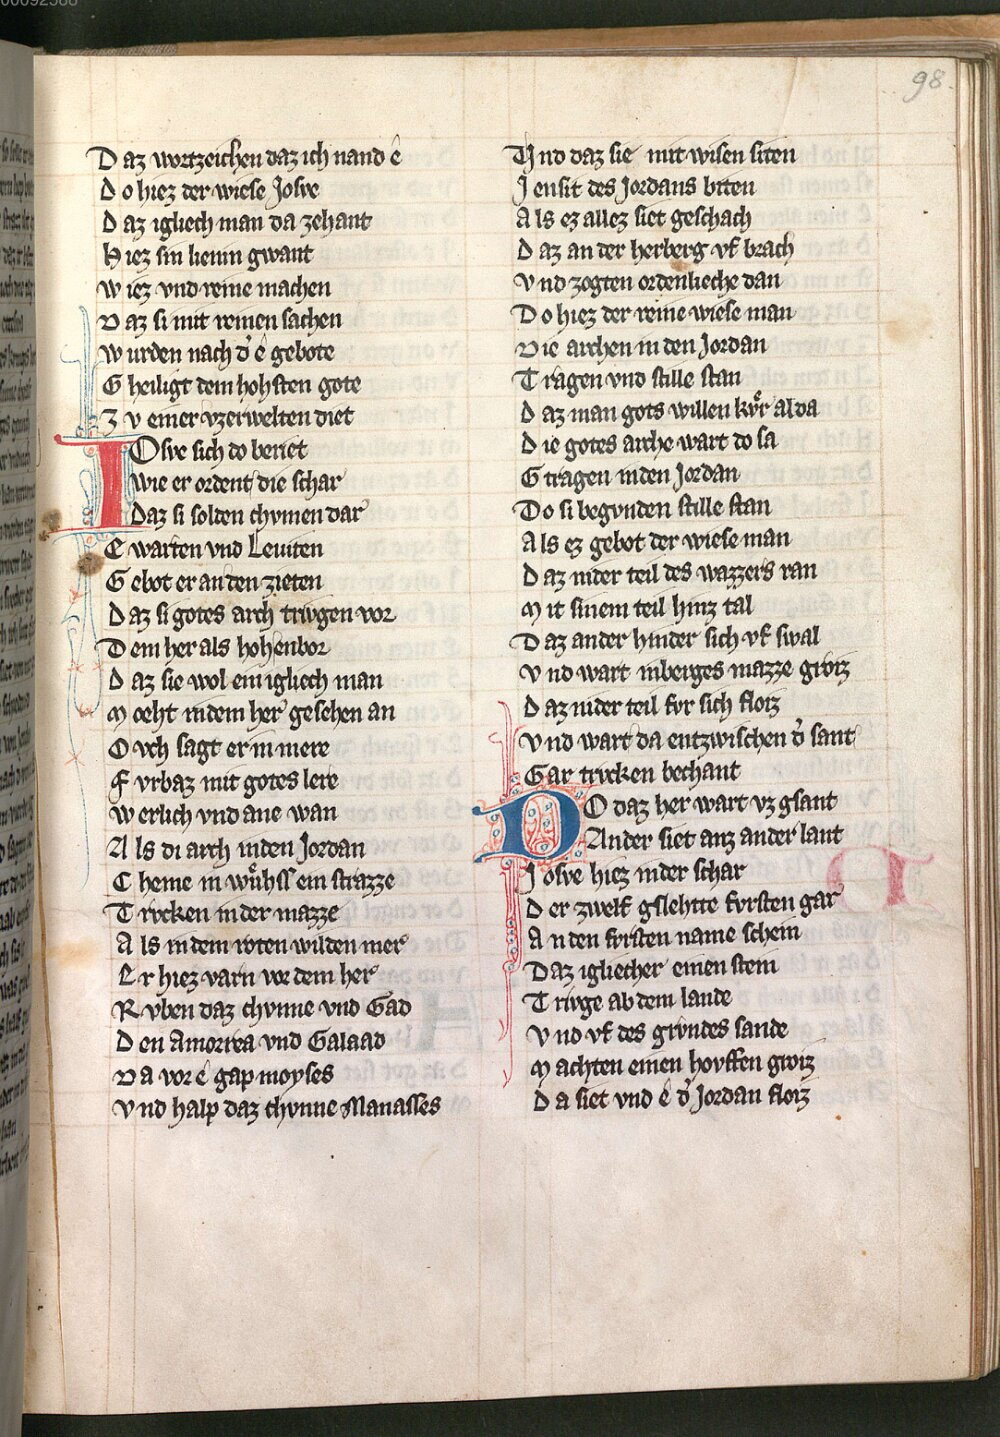 00092388
98
Daz wortzeichen daz ich nand ê
Do hiez der wiese Josve
Daz igliech man da zehant
Hiez sin lienin gwant
Wiez vnd reine machen
Daz si mit reinen sachen
Wurden nach d' ê gebote
Gheiligt dem hohsten gote
Zv einer vzerwelten diet
IOsve sich do beriet
Wie er ordent die schar
Daz si solden chvmen dar
Ewarten vnd Leuiten
Gebot er an den zieten
Daz si gotes arch trvgen vor
Dem her als hoh enbor
Daz sie wol ein igliech man
Moeht in dem her gesehen an
Ovch sagt er in mere
Fvrbaz mit gotes lere
Werlich vnd ane wan
Als di arch in den Jordan
Cheme in wůhss ein strazze
Trvcken in der mazze
Als in dem roten wilden mer
Er hiez varn vor dem her
Rvben daz chvnne vnd Gad
Den Amorrea vnd Galaad
Da vor ê gap moyses
Vnd halp daz chvnne Manasses
Vnd daz sie mit wisen siten
Jensit des Jordans biten
Als ez allez siet geschach
Daz an der herberg vf brach
Vnd zogten ordenlieche dan
Do hiez der reine wiese man
Die archen in den Jordan
Tragen vnd stille stan
Daz man gots willen kvr alda
Die gotes arche wart do sa
Gtragen in den Jordan
Do si begvnden stille stan
Als ez gebot der wiese man
Daz nider teil des wazzers ran
Mit sinem teil hinz tal
Daz ander hinder sich vf swal
Vnd wart in berges mazze groz
Daz nider teil fvr sich floz
Vnd wart da entzwischen d' sant
Gar trvcken bechant
DO daz her wart vz gsant
Ander siet anz ander lant
Josve hiez in der schar
Der zwelf gslehtte fvrsten gar
An den fvrsten name schein
Daz igliecher einen stein
Trvge ab dem lande
Vnd vf des grvndes sande
Machten einen hovffen groz
Da siet vnd ê d' Jordan floz